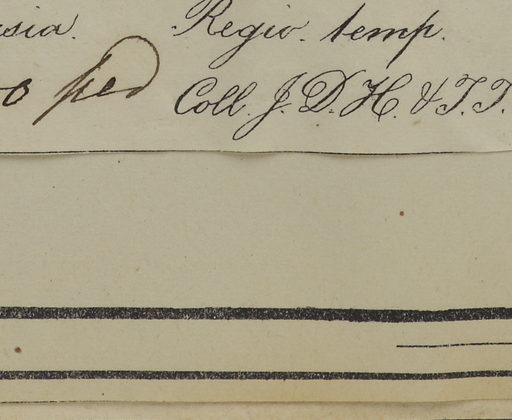 sia. Regio. temp.
0 ped Coll. J. D. H. & T. T.